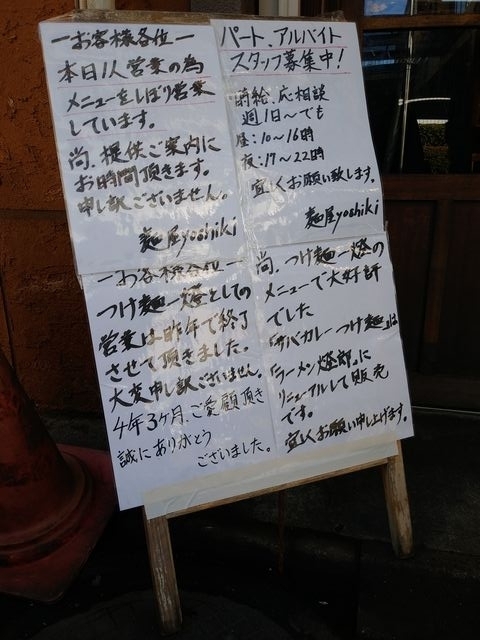 ―お客様各位―
本日1人営業の為
メニューをしぼり営業
しています。
尚、提供、ご案内に
お時間頂きます。
申し訳ございません。
麺屋yoshiki
パート、アルバイト
スタッフ募集中！
時給、応相談
週1日～でも
昼:10～16時
夜:17～22時
宜しくお願い致します。
麺屋yoshiki
―お客様各位―
つけ麺一燈としての
営業は昨年で終了
させて頂きました。
大変申し訳ございません。
4年3ヶ月、ご愛顧頂き
誠にありがとう
ございました。
尚、つけ麺一燈の
メニューで大好評
でした
「サバカレーつけ麺」は
「ラーメン燈郎」に
リニューアルして販売
です。
宜しくお願い申し上げます。